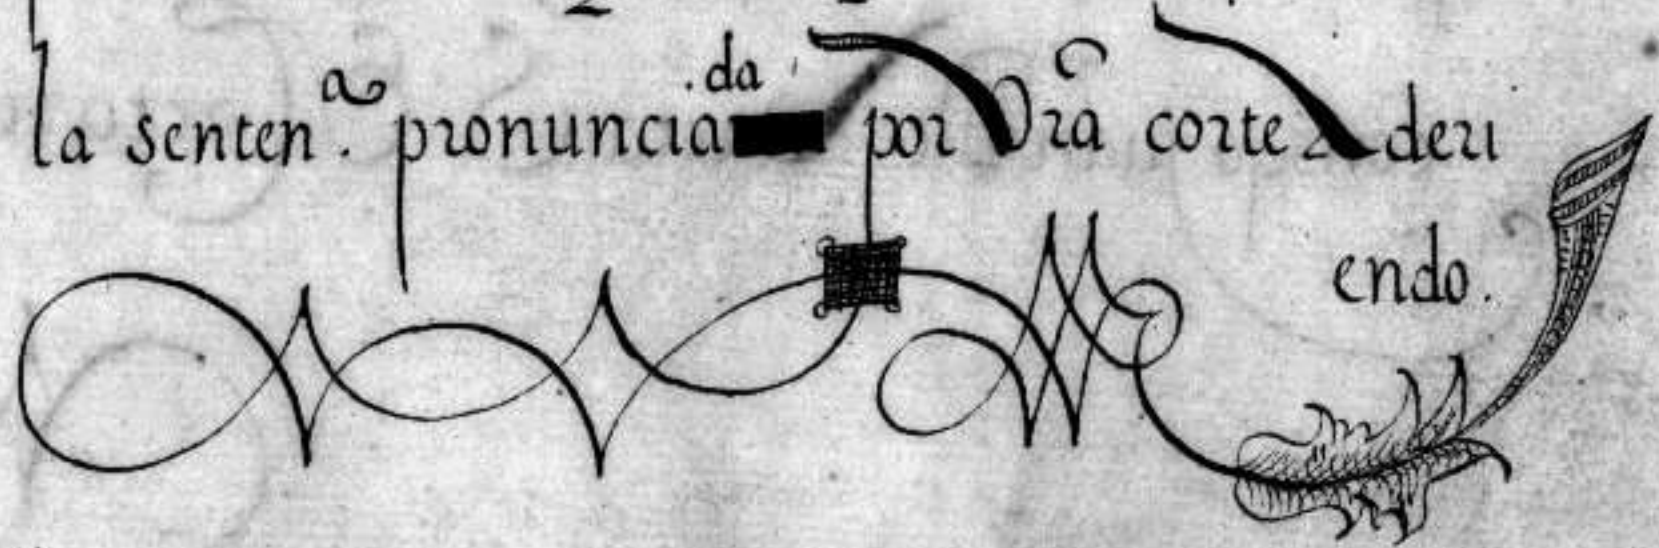 la senten.ᵃ pronuncia .da por Vrã corte deri
endo.